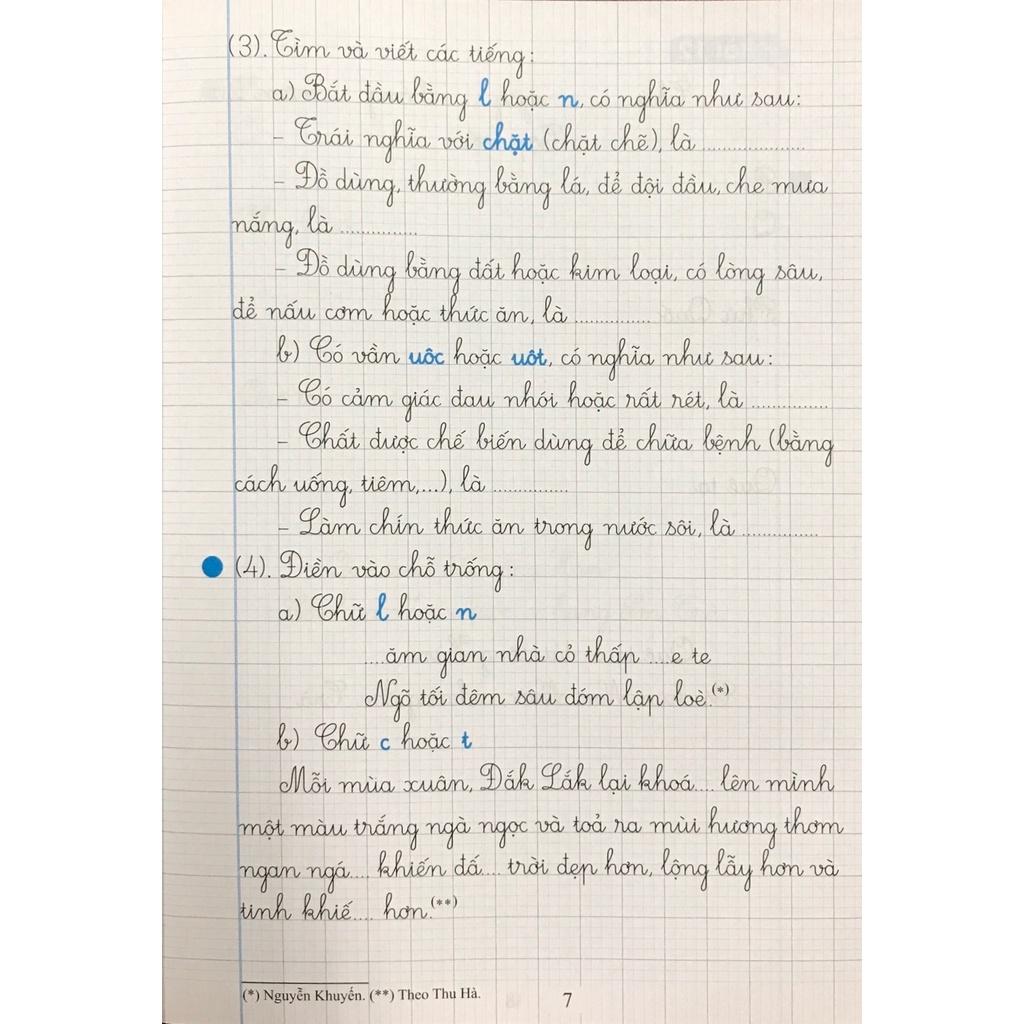 (3). Tìm và viết các tiếng:
a) Bắt đầu bằng l hoặc n, có nghĩa như sau:
- Trái nghĩa với chặt (chặt chẽ), là ....................
- Đồ dùng, thường bằng lá, để đội đầu, che mưa
nắng, là ...............
- Đồ dùng bằng đất hoặc kim loại, có lòng sâu,
để nấu cơm hoặc thức ăn, là ...............
b) Có vần uôc hoặc uôt, có nghĩa như sau:
- Có cảm giác đau nhói hoặc rất rét, là ...............
- Chất được chế biến dùng để chữa bệnh (bằng
cách uống, tiêm,...), là ...............
- Làm chín thức ăn trong nước sôi, là ...............
(4). Điền vào chỗ trống:
a) Chữ l hoặc n
....ăm gian nhà cỏ thấp ....e te
Ngõ tối đêm sâu đóm lập loè.(*)
b) Chữ c hoặc t
Mỗi mùa xuân, Đắk Lắk lại khoá.... lên mình
một màu trắng ngà ngọc và toả ra mùi hương thơm
ngan ngá.... khiến đấ.... trời đẹp hơn, lộng lẫy hơn và
tinh khiế.... hơn.(**)
(*) Nguyễn Khuyến. (**) Theo Thu Hà.
7